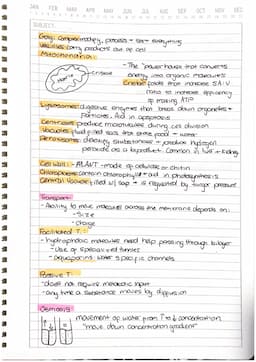 JAN FEB MAR APR MAY JUN JUL AUG SEP OCT NOV DEC
SUBJECT:
Golgi complex: modify, process + sort everything
Vesicles: carry products out of cell
Mitochondrion:
- The "powerhouse" that converts
energy into organic molecules
Cristae
Matrix
Cristae: folds that increase SA:V
ratio to increase efficiency
of making ATP
Lysosomes: digestive enzymes that break down organelles +
particles. Aid in apoptosis
Centrioles: produce microtubules during cell division
Vacuoles: fluid filled sacs that store food + water
Peroxisomes: detoxify substances + produce hydrogen
peroxide as a byproduct. Common in liver + kidney
Cell wall: - PLANT - made of cellulose or chitin
Chloroplasts: contain chlorophyll + aid in photosynthesis
Central Vacuole: fluid w/ sap + is supported by turgor pressure
Transport:
- Ability to move molecules across the membrane depends on:
- Size
- charge
Facilitated T:
- hydrophobic molecules need help passing through bilayer
- Use of specialised tunnels
- aquaporins: water specific channels
Passive T:
- does not require metabolic input
- any time a substance moves by diffusion
Osmosis:
movement of water from ↑ to ↓ concentration
"move down concentration gradient"